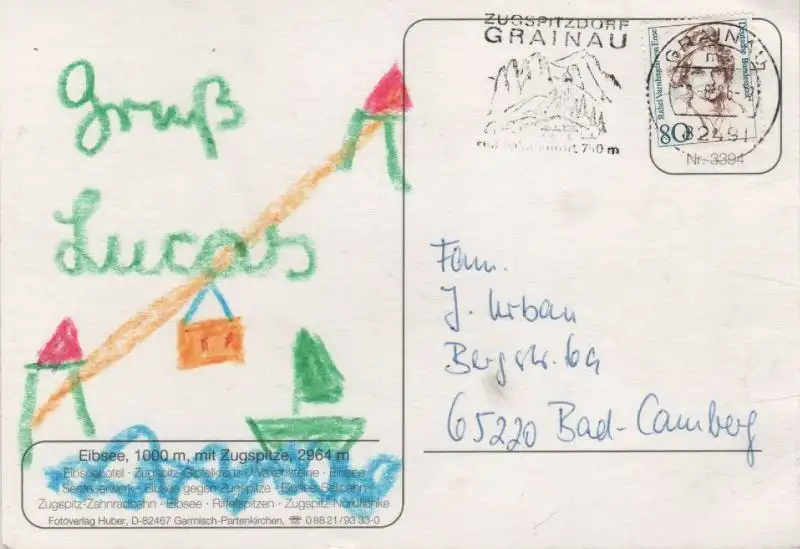 Gruß
Lucas
Eibsee, 1000 m, mit Zugspitze, 2964 m
Eibseehotel · Zugspitz-Gipfelkreuz · Waxensteine · Eibsee
Eibsee gegen Zugspitze · Eibsee-Seilbahn
Zugspitz-Zahnradbahn · Eibsee · Riffelspitzen · Zugspitz-Nordflanke
Fotoverlag Huber, D-82467 Garmisch-Partenkirchen, ☏ 0 88 21/93 33-0
ZUGSPITZDORF
GRAINAU
750 m
GRAINAU
82491
Rahel Varnhagen von Ense
Deutsche Bundespost
80
Nr. 3394
Fam.
J. Urban
Bergstr. 69
65220 Bad-Camberg